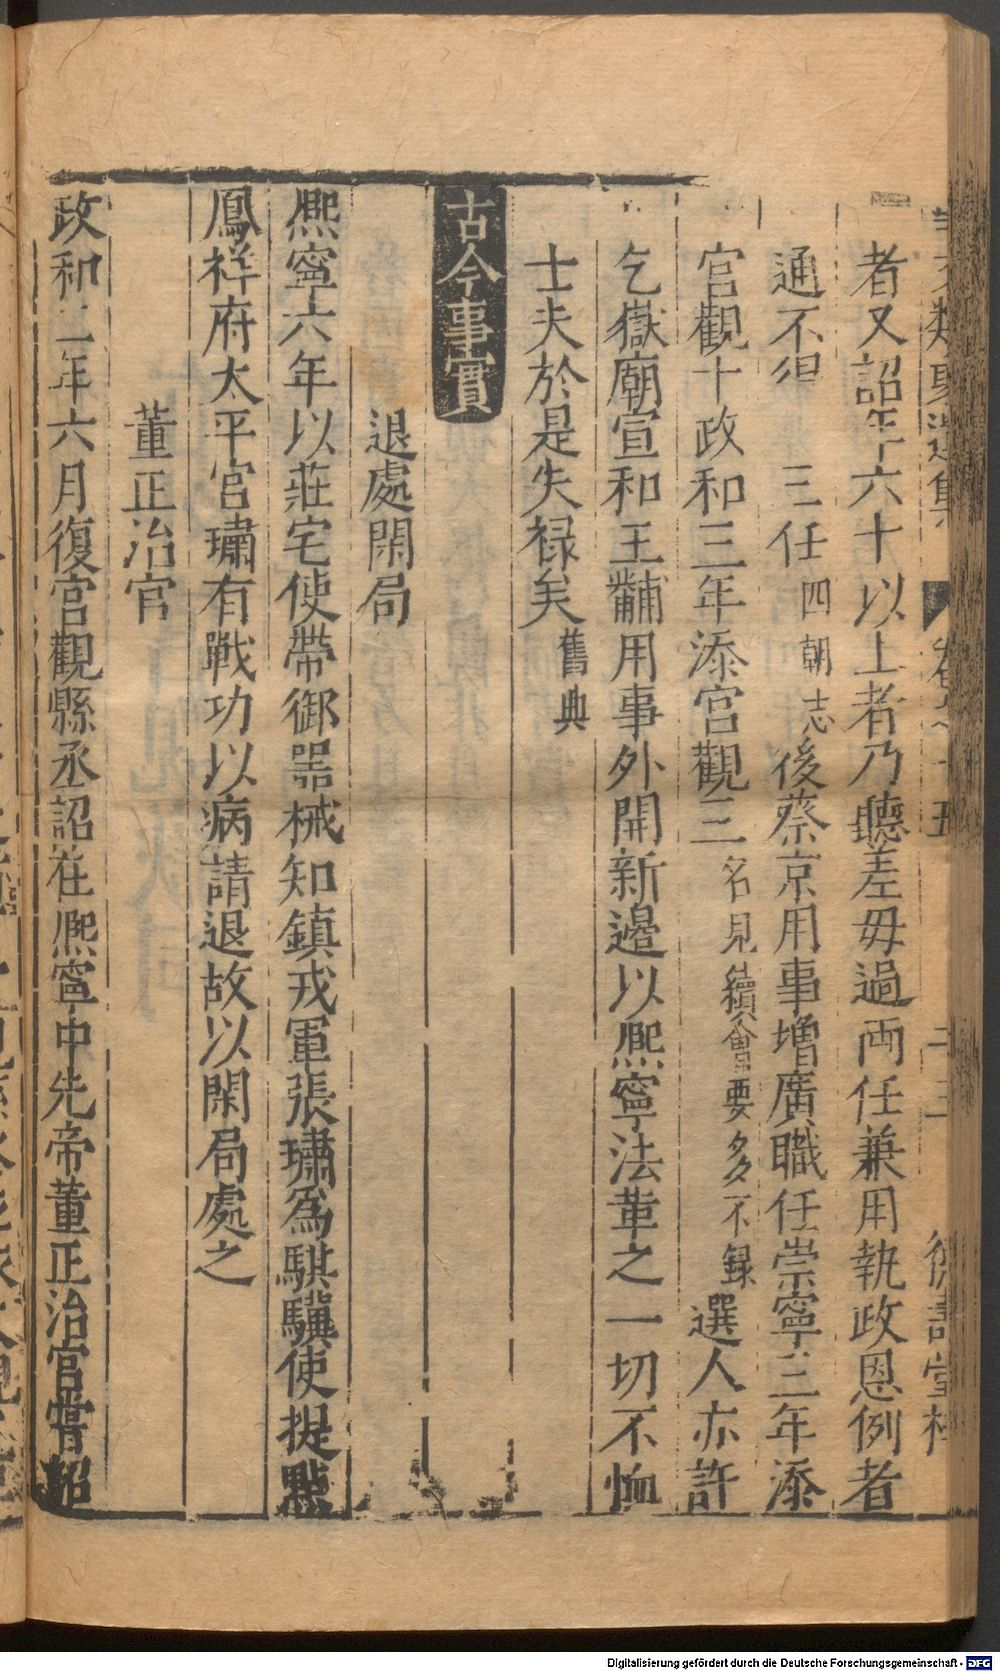 者又詔年六十以上者乃聽差毋過両任兼用執政恩例者
通不得 三任四朝志後蔡京用事增廣職任崇寧三年添
宮觀十政和三年添宮觀三名見續會要多不録選人亦許
乞嶽廟宣和王黼用事外開新邉以熈寧法革之一切不恤
士夫於是失禄矣舊典
古今事實
退處閑局
熈寧六年以莊宅使帶御噐械知鎮戎軍張璛爲騏驥使提㸃
鳳祥府太平宮璛有戰功以病請退故以閑局處之
董正治官
政和二年六月復宮觀縣丞詔在熈寧中先帝董正治官嘗詔
Digitalisierung gefördert durch die Deutsche Forschungsgemeinschaft - DFG